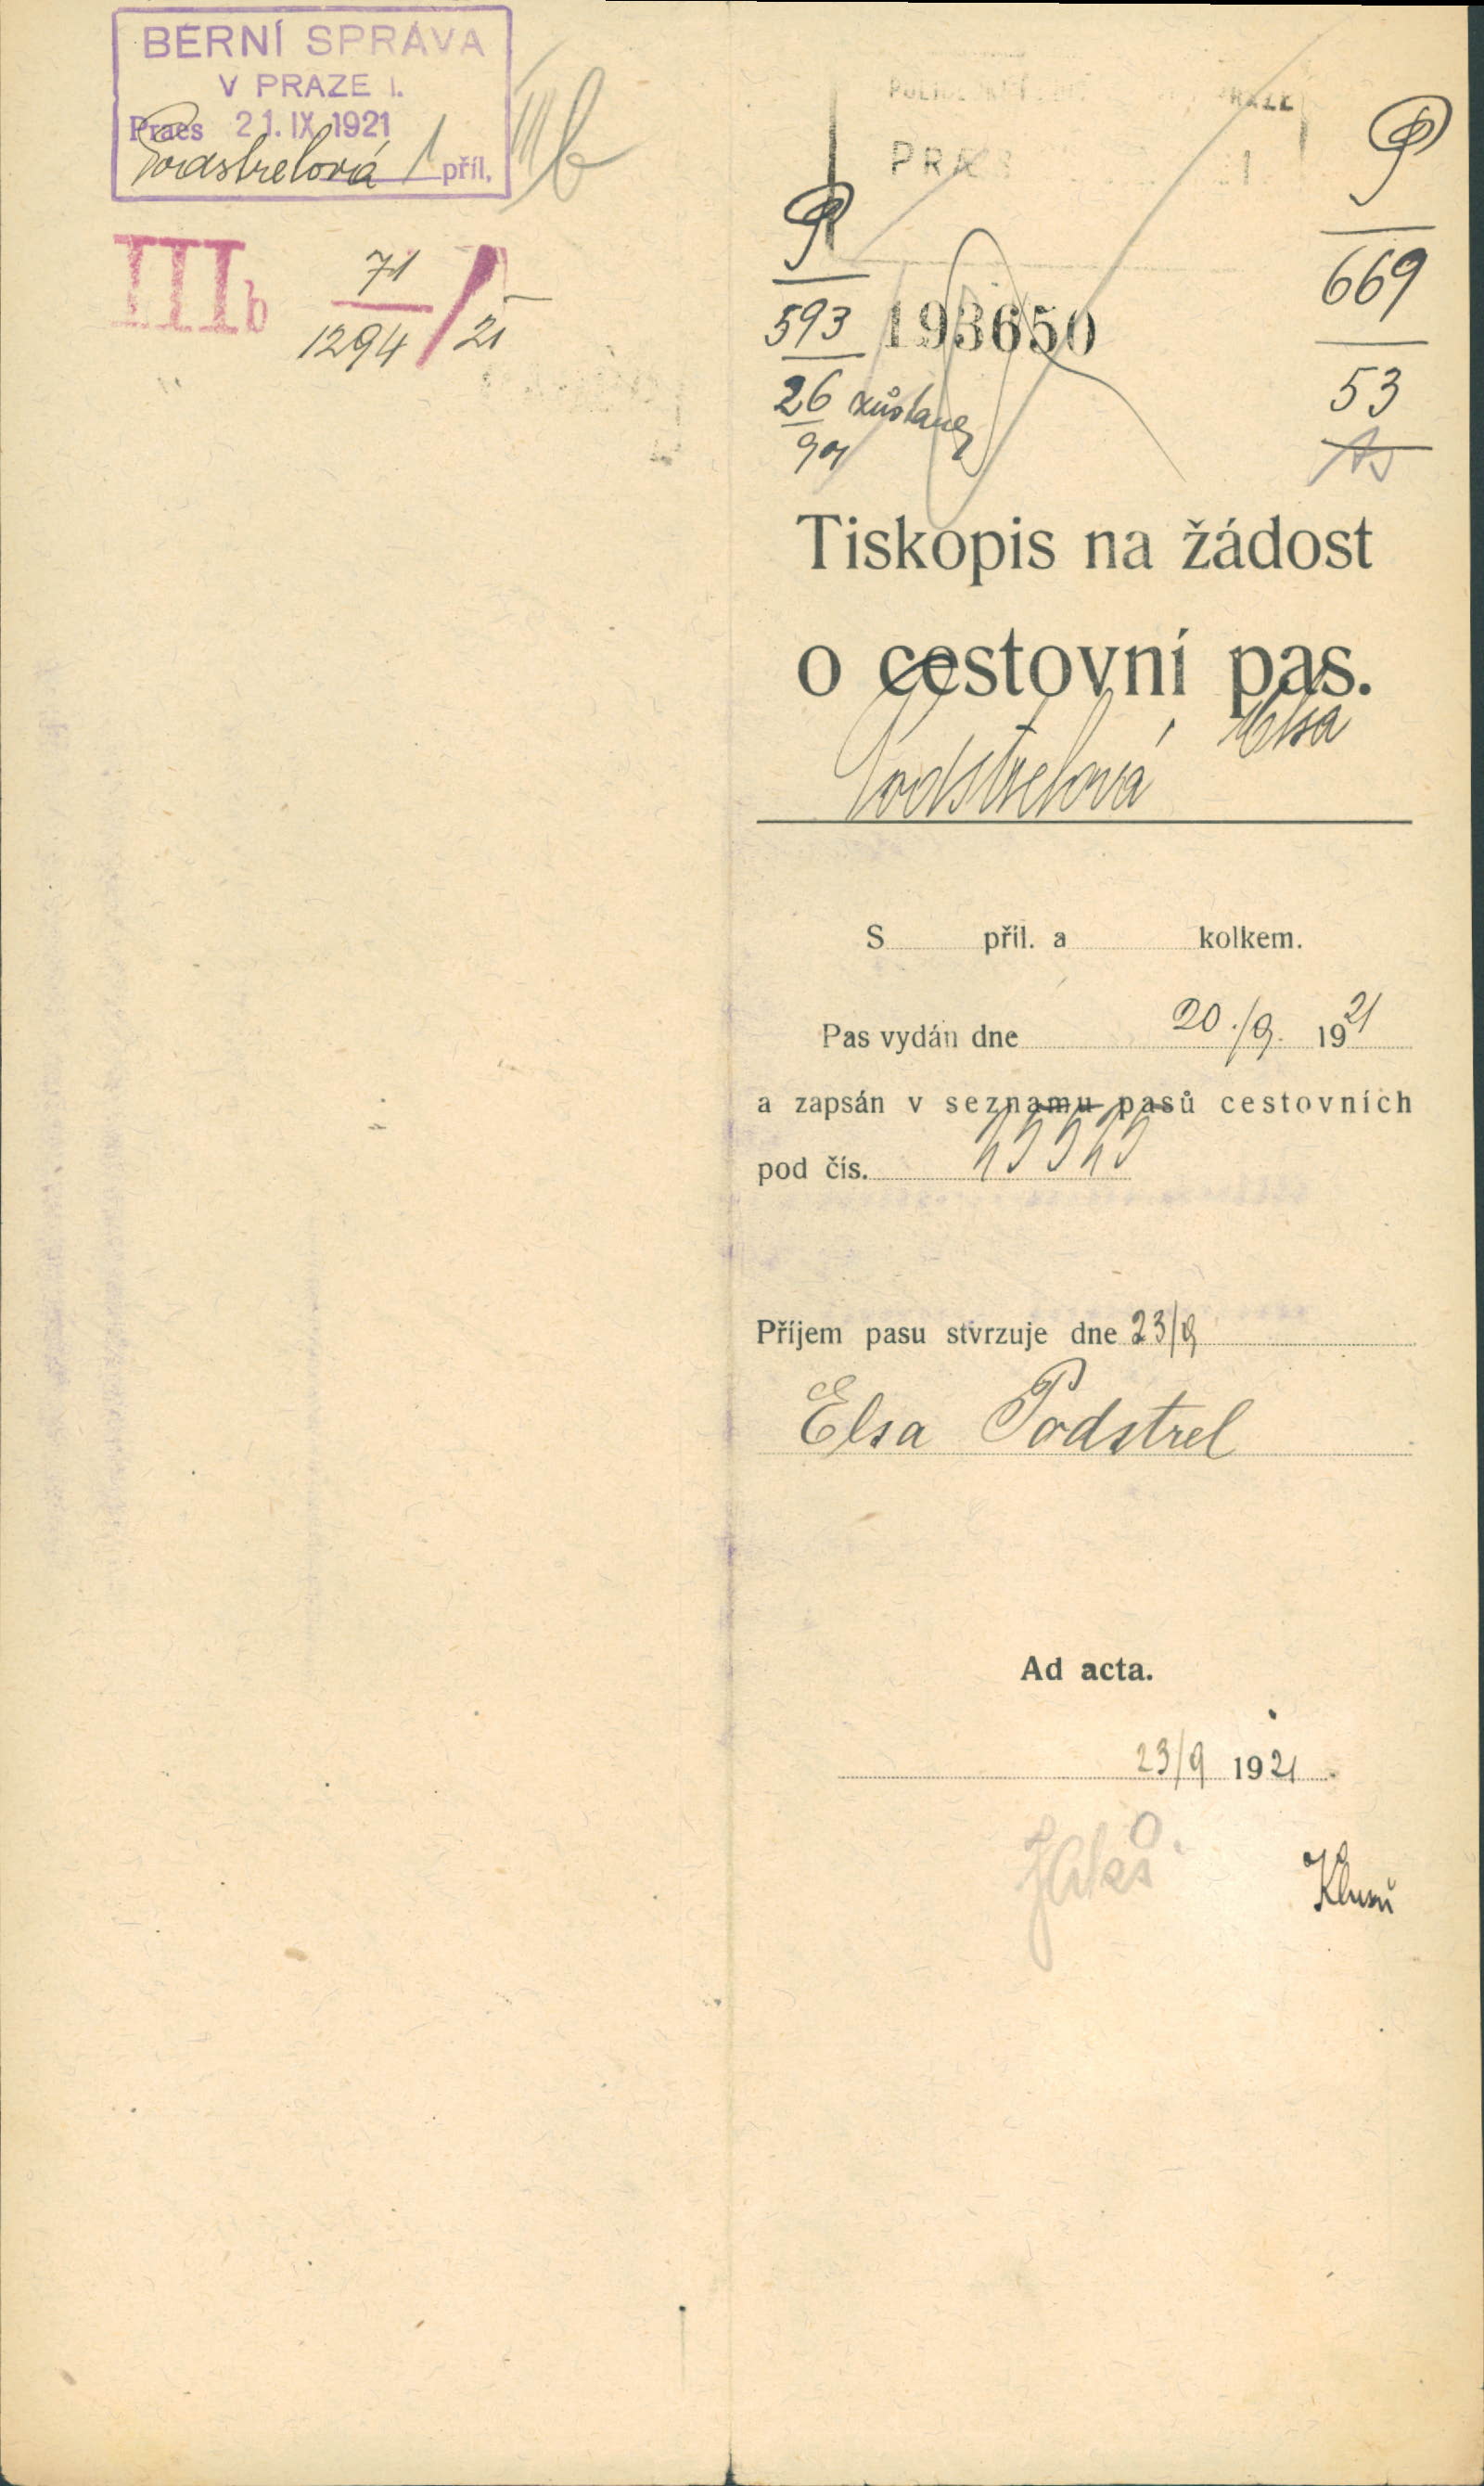 BERNÍ SPRÁVA
V PRAZE I.
Praes 21. IX. 1921
Podstrelová 1 příl.
III b
III b 71
1294 / 21
PRAZE
P
593 193650
26 zůstane
P
669
53
Tiskopis na žádost
o cestovní pas.
Elsa
Podstrelová
S příl. a kolkem.
Pas vydán dne 20./9. 1921
a zapsán v seznamu pasů cestovních
pod čís.
Příjem pasu stvrzuje dne 23/9
Elsa Podstrel
Ad acta.
23/9 1921